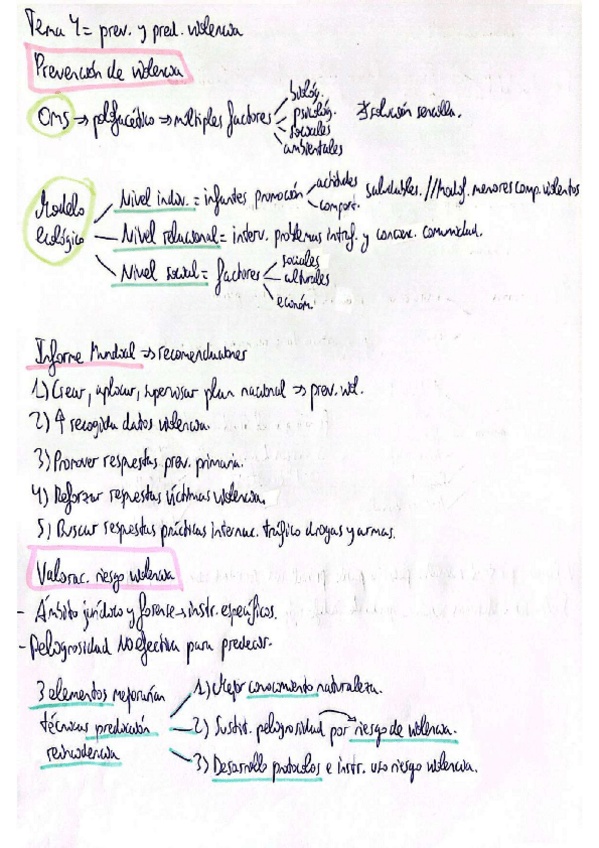 Tema 4= prev. y pred. violencia
Prevención de violencia
OMS => polifacético => múltiples factores
biológ.
psicológ.
sociales
ambientales
solución sencilla.
Modelo ecológico
Nivel indiv. = infantes promoción
actitudes
comport.
saludables. // Modif. menores comp. violentos
Nivel relacional = interv. problemas intraf. y concien. comunidad.
Nivel social = factores
sociales
culturales
económ.
Informe Mundial => recomendaciones
1) Crear, aplicar, supervisar plan nacional => prev. viol.
2) ↑ recogida datos violencia.
3) Promover respuestas prev. primaria.
4) Reforzar respuestas víctimas violencia.
5) Buscar respuestas prácticas internac. tráfico drogas y armas.
Valorac. riesgo violencia
- Ámbito jurídico y forense → instr. específicos.
- Peligrosidad NO efectiva para predecir.
3 elementos mejorarían técnicas predicción reincidencia
1) Mejor conocimiento naturaleza.
2) Sustit. peligrosidad por riesgo de violencia.
3) Desarrollo protocolos e instr. uso riesgo violencia.